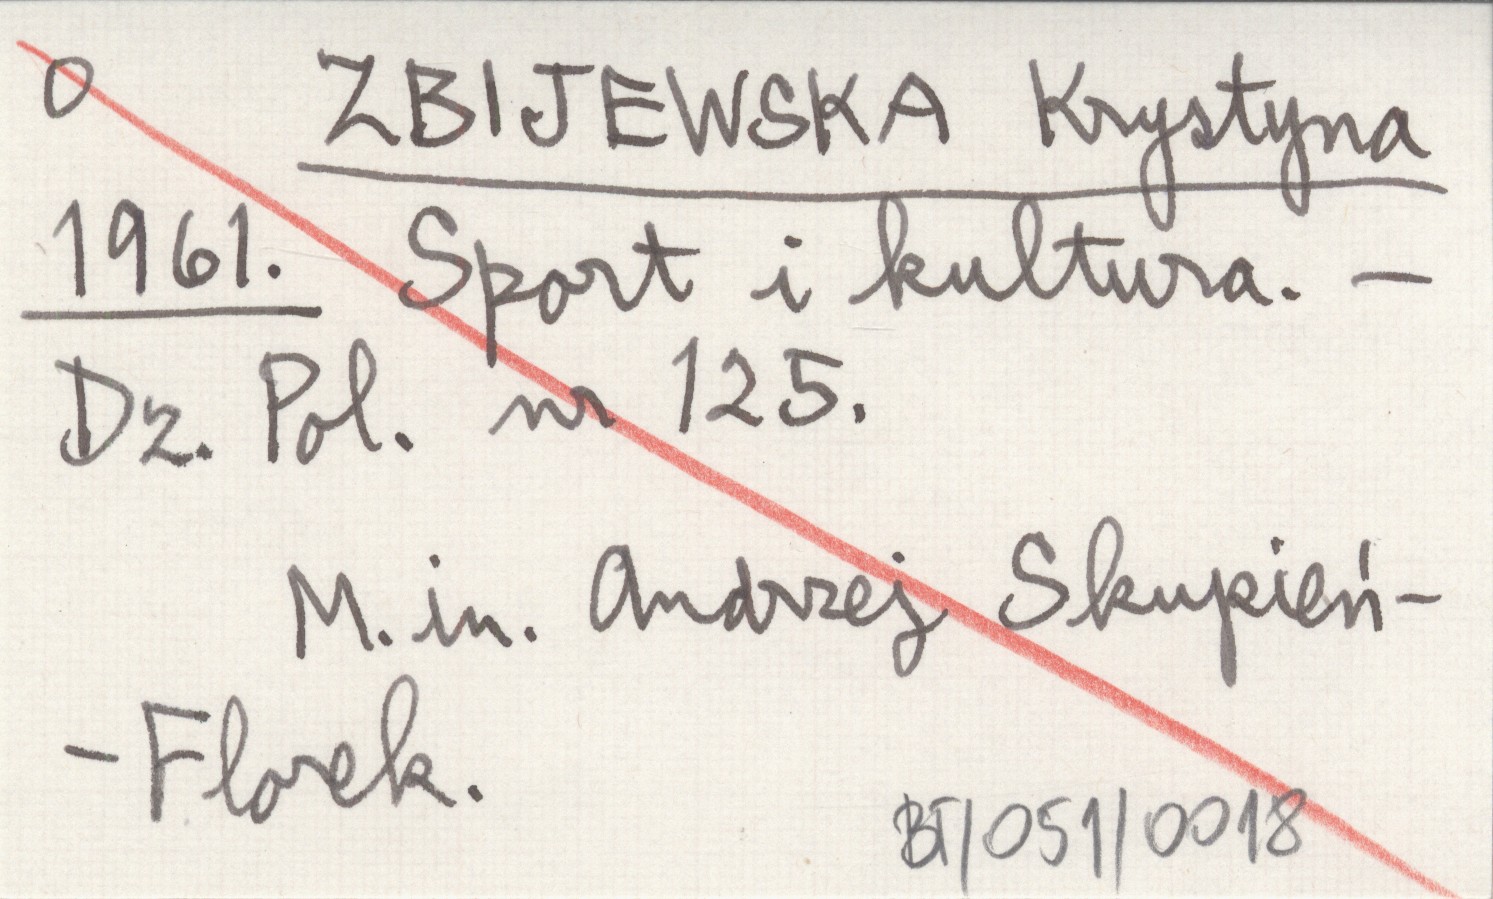 O ZBIJEWSKA Krystyna
1961. Sport i kultura. —
Dz. Pol. nr 125.
M. in. Andrzej Skupień-
-Florek.
BT/051/0018